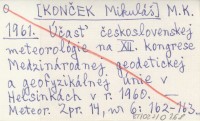 [KONČEK Mikuláš] M.K.
1961. Účasť československej
meteorologie na XII. kongrese
Medzinárodnej geodetickej
a geofyzikálnej unie v
Helsinkách v r. 1960. —
Meteor. Zpr. 14, no 6: 162-163.